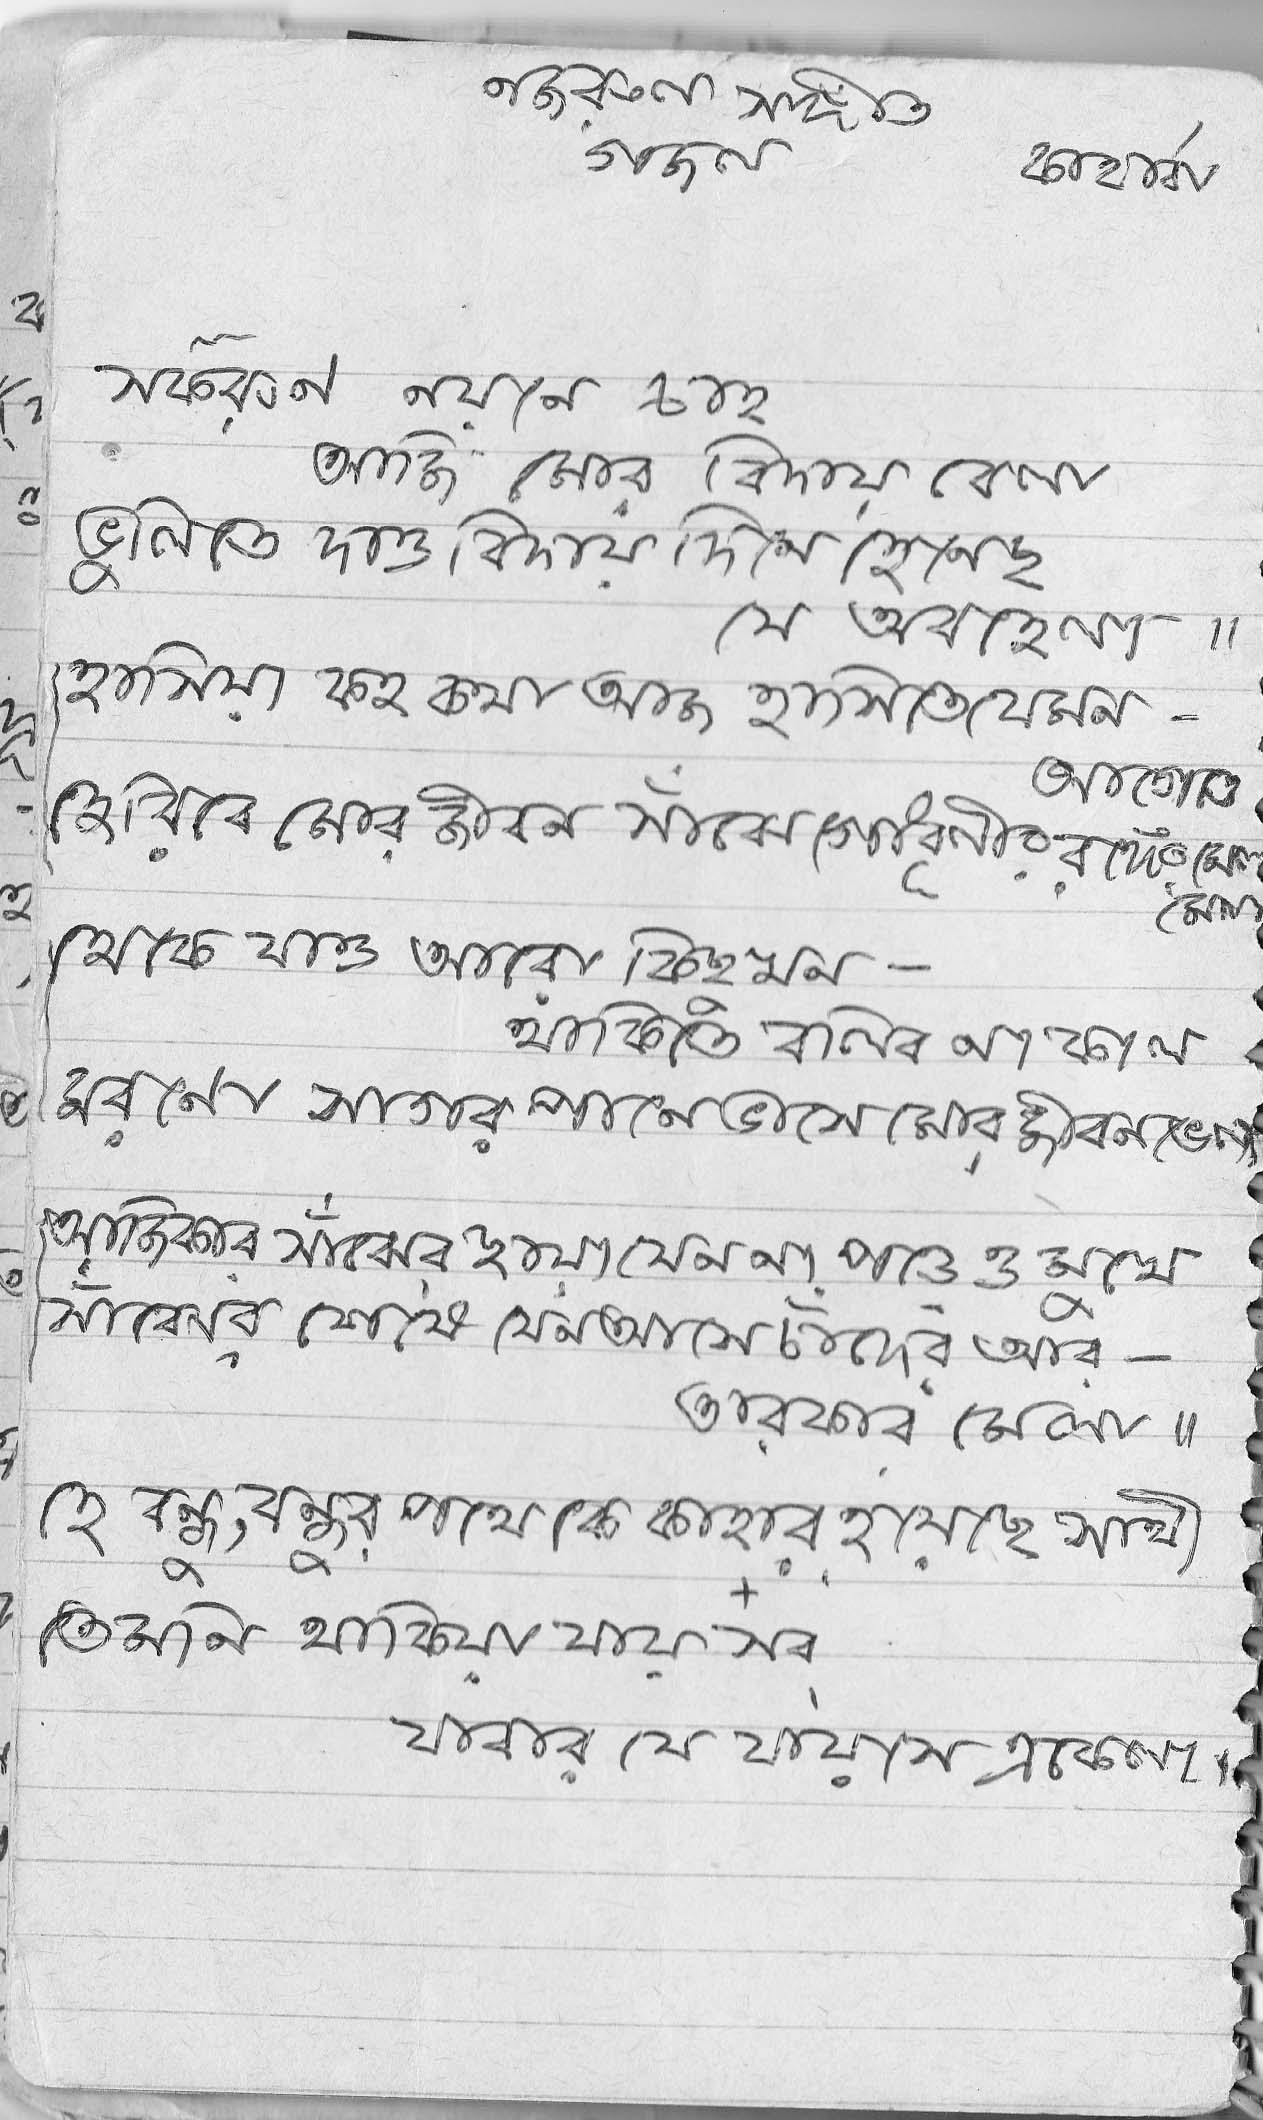 নজরুল সঙ্গীত
গজল কাহার্বা
সকরুণ নয়নে চাহ
আজি মোর বিদায় বেলা
ভুলিতে দাও বিদায় দিনে হেনেছ
যে অবহেলা ॥
হাসিয়া কহ কথা আজ হাসিতে যেমন -
আগেতে
হেরিবে মোর জীবন সাঁঝে গোধূলীর রঙের
মেলা
থেকে যাও আরো কিছুখন -
থাকিতে বলিব না কাল
মরণো সাগর পানে ভাসে মোর জীবন ভেলা
আজিকার সাঁঝের ছায়া যেন না পড়ে ও মুখে
সাঁঝের শেষে যেন আসে চাঁদের আর -
তারকার মেলা ॥
হে বন্ধু, বন্ধুর পথে কে কাহার হয়েছে সাথী
তেমনি থাকিয়া যায় সব
যাবার যে যায় সে একেলা ।